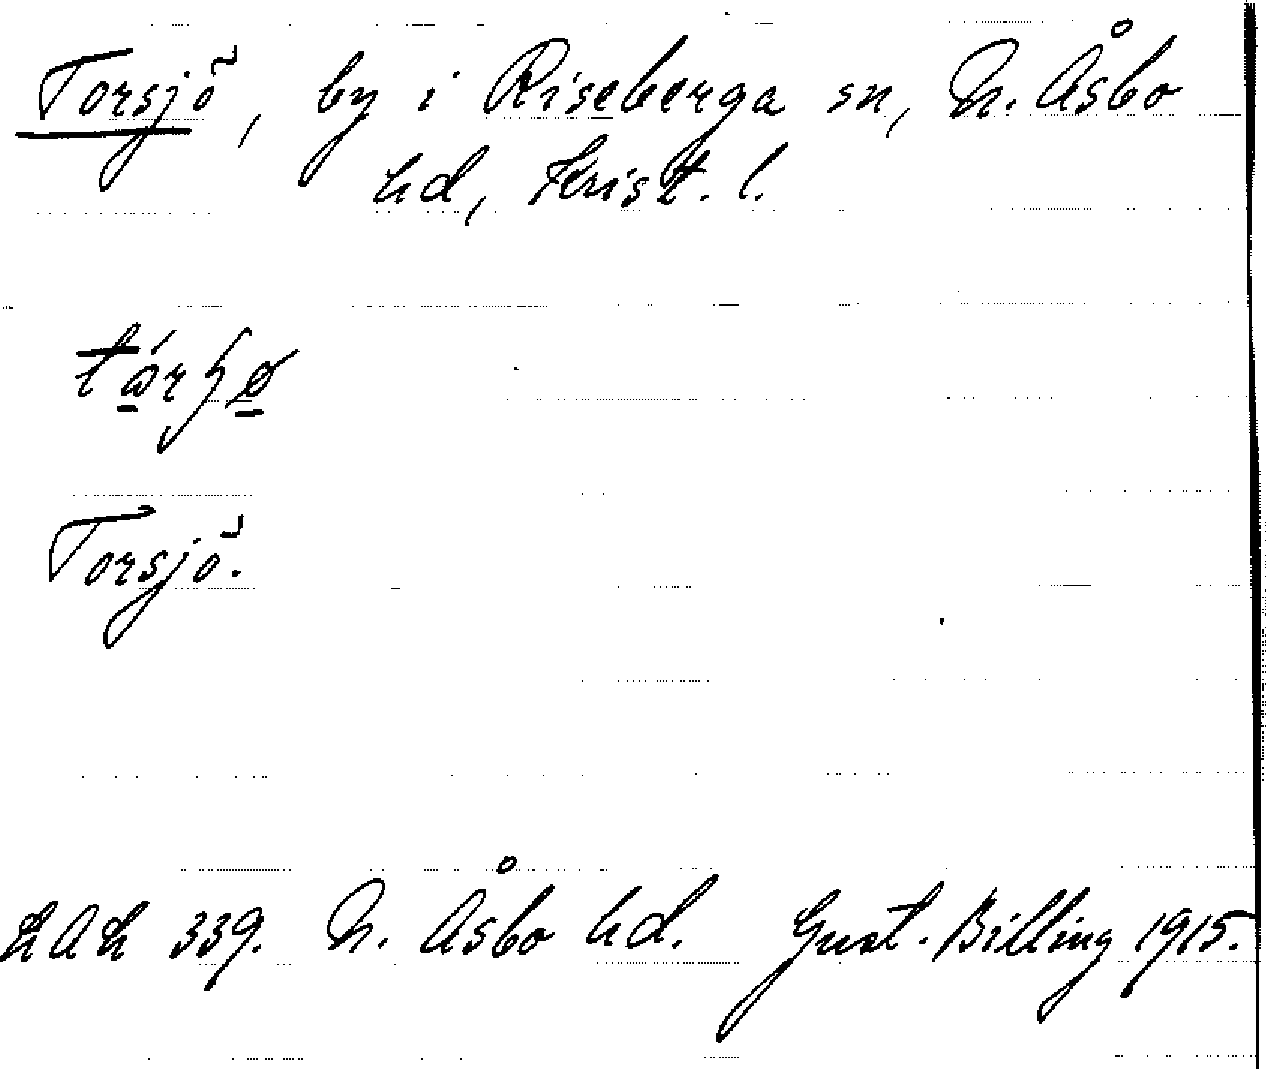 Torsjö, by i Riseberga sn, N. Åsbo
hd, Krist. l.
Torsjö.
LAL 339. N. Åsbo hd. Gust. Billing 1915.